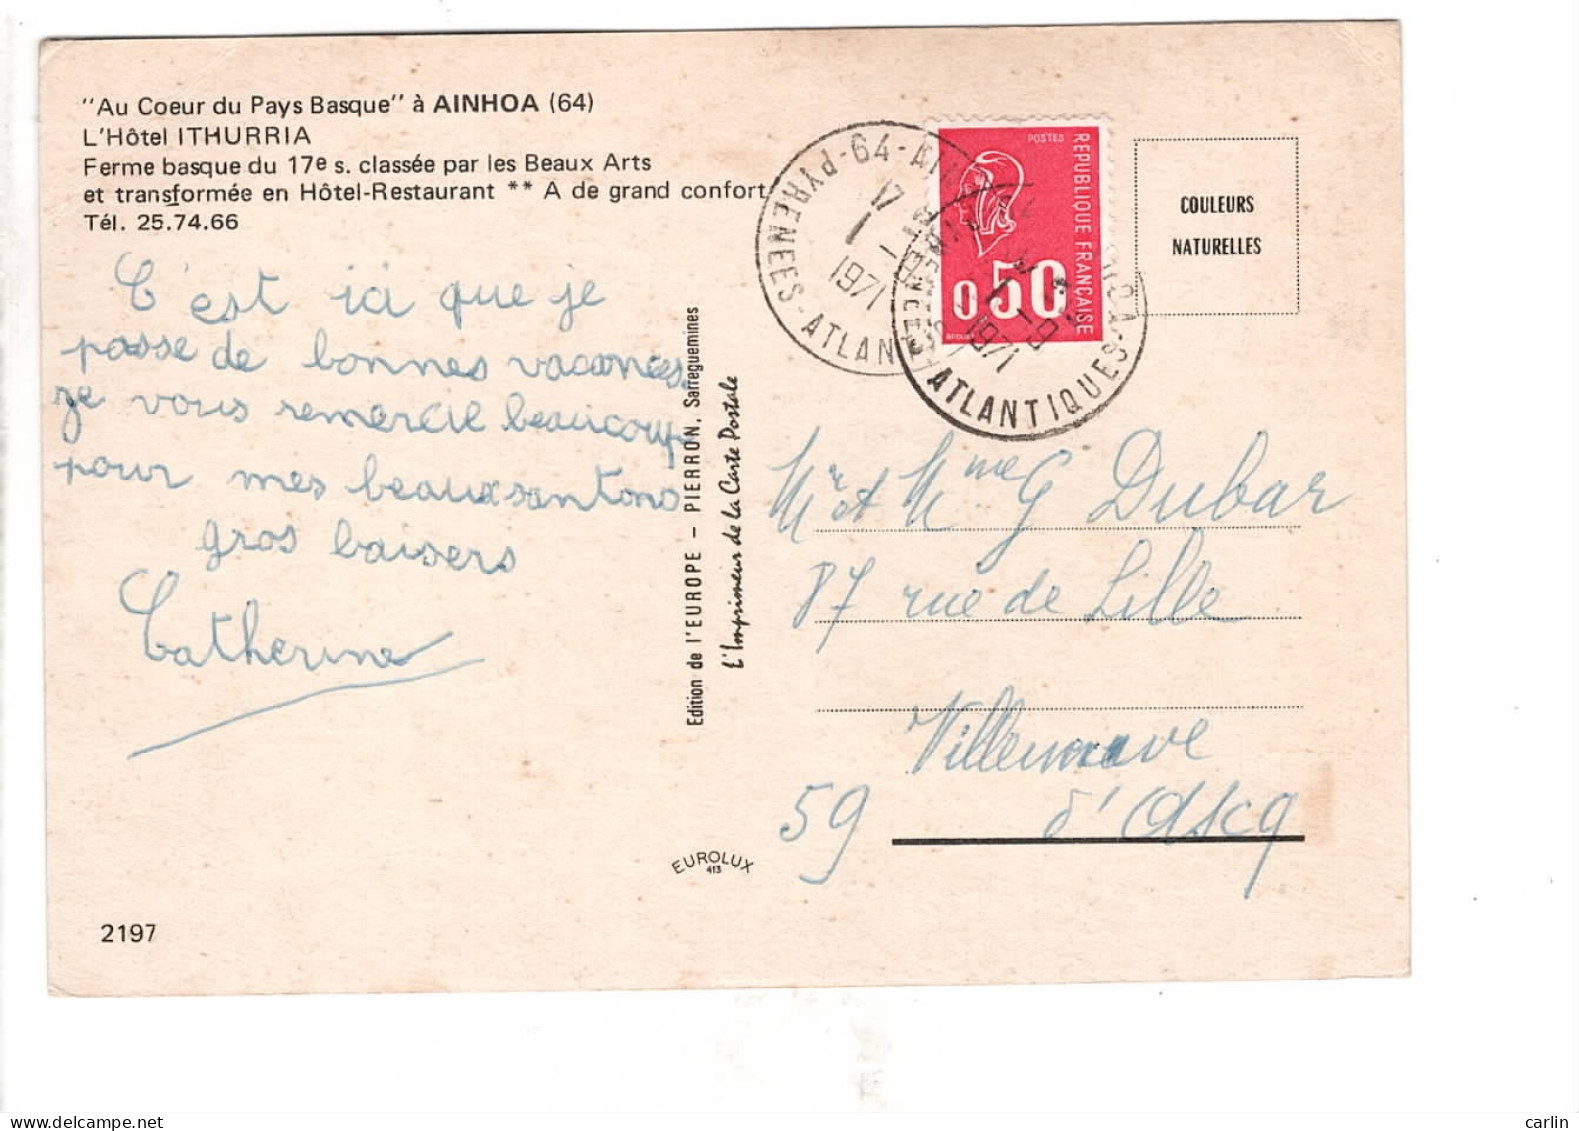 "Au Coeur du Pays Basque" à AINHOA (64)
L'Hôtel ITHURRIA
Ferme basque du 17e s. classée par les Beaux Arts
et transformée en Hôtel-Restaurant ** A de grand confort
Tél. 25.74.66
C'est ici que je
passe de bonnes vacances.
je vous remercie beaucoup
pour mes beaux santons
gros baisers
Catherine
2197
Edition de l'EUROPE - PIERRON, Sarreguemines
L'Imprimeur de la Carte Postale
EUROLUX
413
64-
PYRENEES-ATLAN
17
1971
ATLANTIQUES
1971
POSTES
REPUBLIQUE FRANÇAISE
0,50
COULEURS
NATURELLES
Mr et Mme G Dubar
87 rue de Lille
Villeneuve
59 d'Ascq
carlin